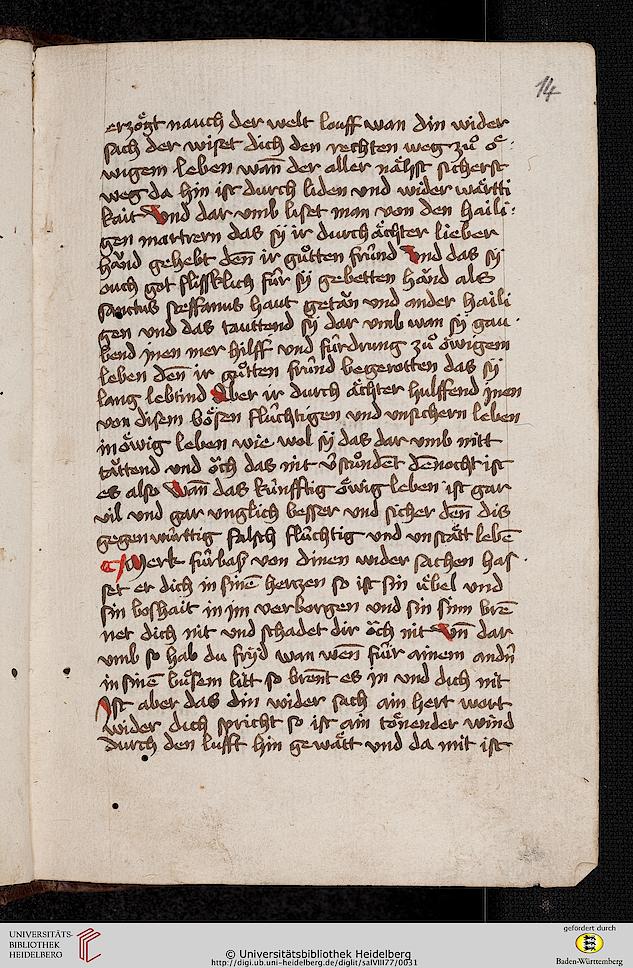 14
erzögt nauch der welt louff wan din wider
sach der wiset dich den rechten weg zů e᷎
wigem leben wañ der aller nähst sicherst
weg da hin ist durch liden und wider wärtti
kait Vnd dar vmb liset man von den haili-
gen martrern das sÿ ir durch ächter lieber
händ gehebt deñ ir gůtten fründ Vnd das sÿ
ouch got flissklich für sÿ gebetten händ als
sanctus steffanus haut getän vnd ander haili
gen vnd das tauttend sÿ dar vmb wan sÿ gau-
bend jnen mer hilff vnd fürdrung zů öwigem
leben deñ ir gůtten fründ begerotten das sÿ
lang lebtind Aber ir durch ächter hulffend jnen
von disem bösen flüchtigen vnd vnsichern leben
in öwig leben wie wol sÿ das dar vmb nitt
tättend vnd öch das nit v̄stůndet deñocht ist
es also Wañ das künfftig öwig leben ist gar
vil vnd gar vnglich besser vnd sicher deñ dis
gegen württig falsch flüchtig vnd vnstätt lebē
Merk fürbas von dinen wider sachen has-
set er dich in sinē hertzen so ist sin übel vnd
sin boshait in im verborgen vnd sin sinn brē
net dich nit vnd schadet dir öch nit Vñ dar
vmb so hab du frÿd wan weñ für ainem andn̄
in sinē bůsem litt so breñt es in vnd dich nit
Ist aber das din wider sach ain hert wort
wider dich spricht so ist ain tönender wind
durch den lufft hin gewätt vnd da mit ist
UNIVERSITÄTS-
BIBLIOTHEK
HEIDELBERG
© Universitätsbibliothek Heidelberg
http://digi.ub.uni-heidelberg.de/diglit/salVIII77/0031
gefördert durch
Baden-Württemberg